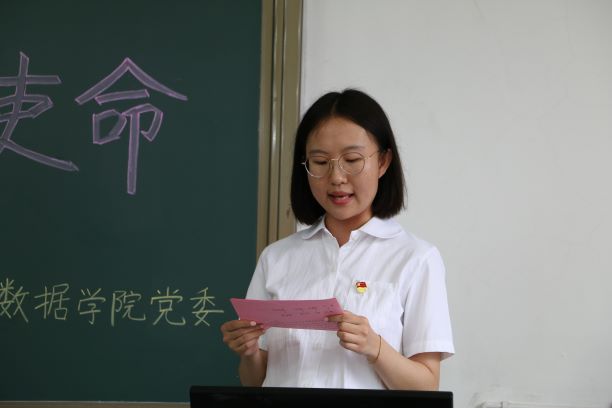 使命
数据学院党委